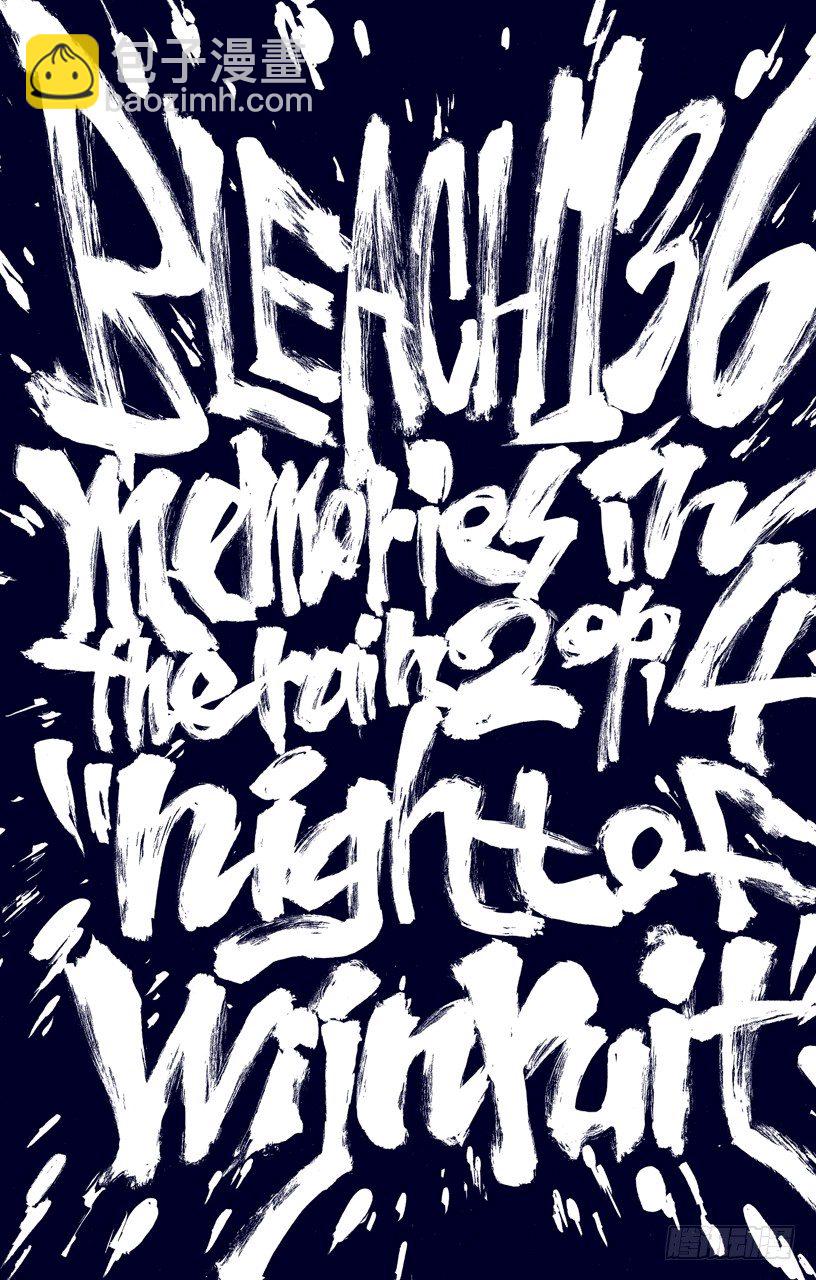 包子漫畫
baozimh.com
BLEACH136
memories in
the rain2 op.4
"night of
wijnruit"
腾讯动漫